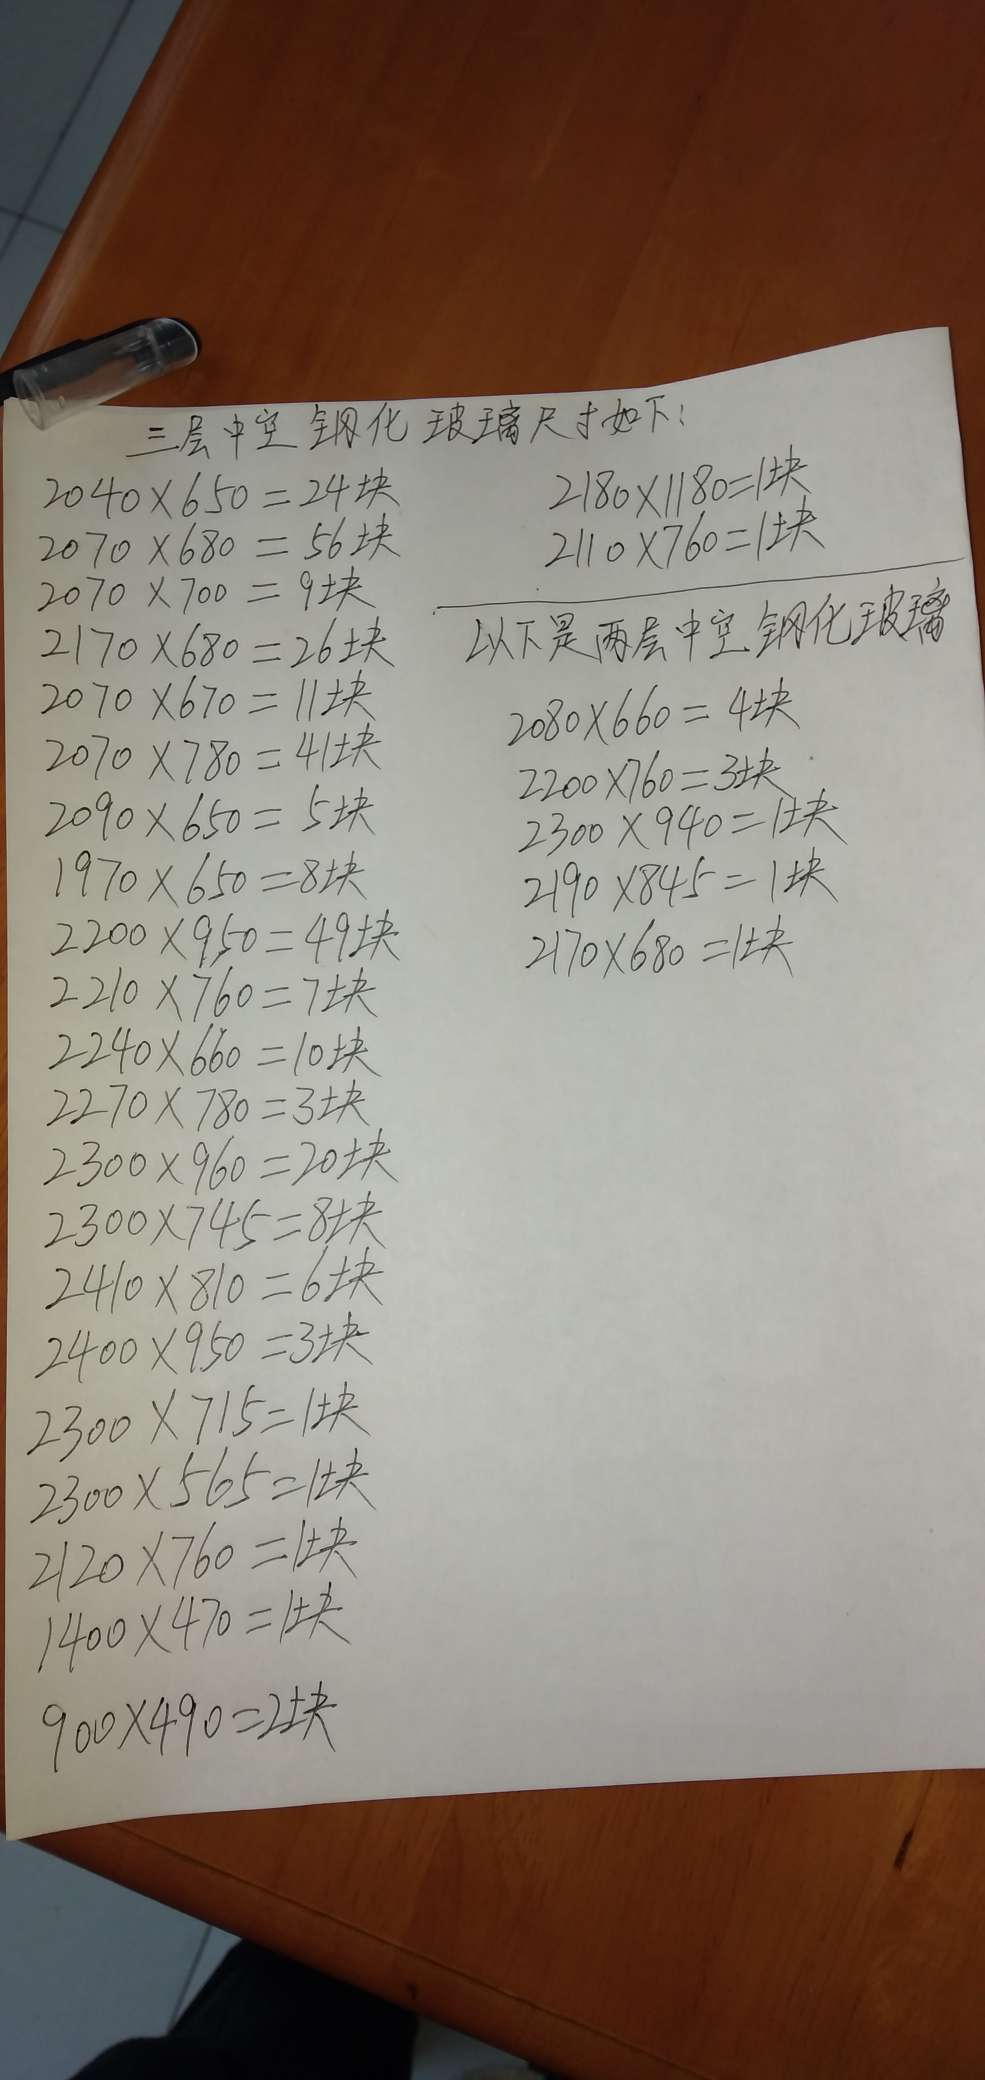 三层中空钢化玻璃尺寸如下:
2040×650=24块
2070×680=56块
2070×700=9块
2170×680=26块
2070×670=11块
2070×780=41块
2090×650=5块
1970×650=8块
2200×950=49块
2210×760=7块
2240×660=10块
2270×780=3块
2300×960=20块
2300×745=8块
2410×810=6块
2400×950=3块
2300×715=1块
2300×565=1块
2120×760=1块
1400×470=1块
900×490=2块
2180×1180=1块
2110×760=1块
以下是两层中空钢化玻璃
2080×660=4块
2200×760=3块
2300×940=1块
2190×845=1块
2170×680=1块